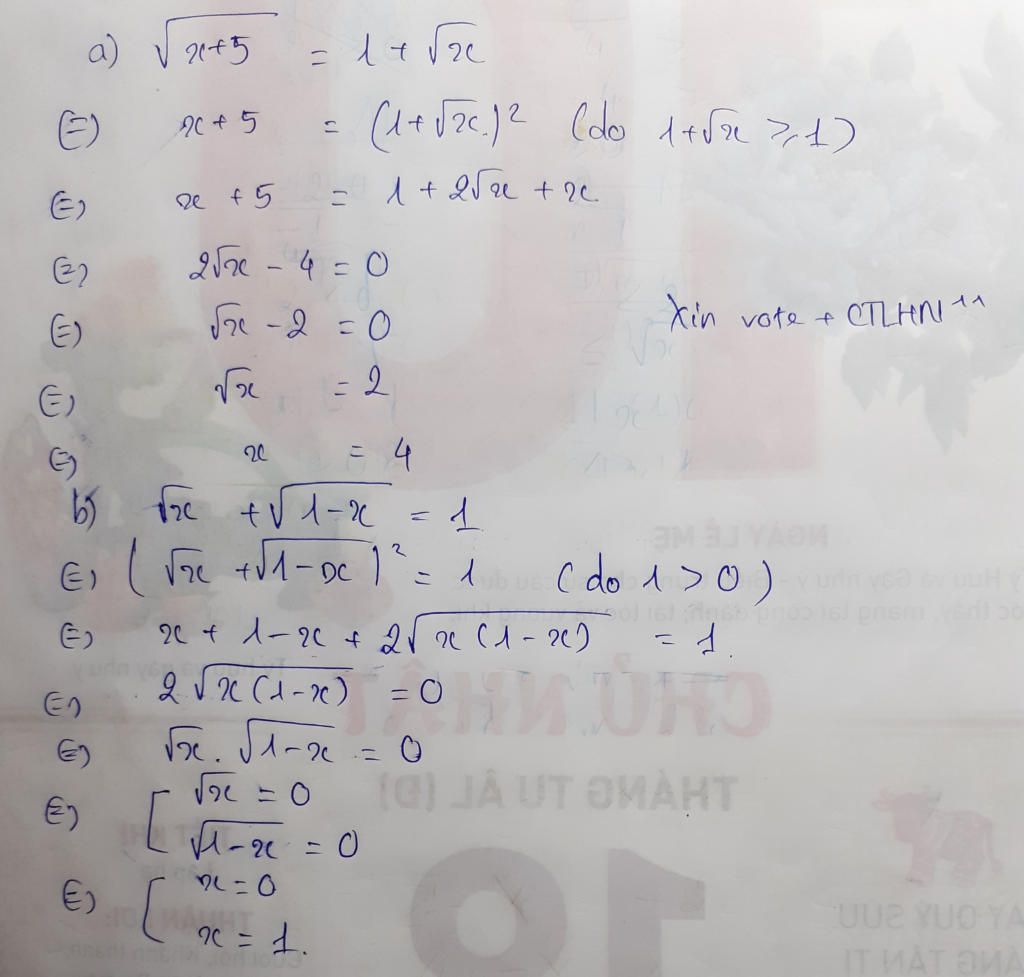 a) √(x+5) = 1 + √x
⇔ x + 5 = (1+√x)² (do 1+√x ≥ 1)
⇔ x + 5 = 1 + 2√x + x
⇔ 2√x - 4 = 0
⇔ √x - 2 = 0
Xin vote + CTLHN ^^
⇔ √x = 2
⇔ x = 4
b) √x + √(1-x) = 1
⇔ (√x + √(1-x))² = 1 (do 1 > 0)
⇔ x + 1 - x + 2√(x(1-x)) = 1.
⇔ 2√(x(1-x)) = 0
⇔ √x . √(1-x) = 0
⇔ [ √x = 0
√(1-x) = 0
⇔ [ x = 0
x = 1.
NGÀY LỄ MẸ
CHỦ NHẬT
THÁNG TƯ ÂL (Đ)
10